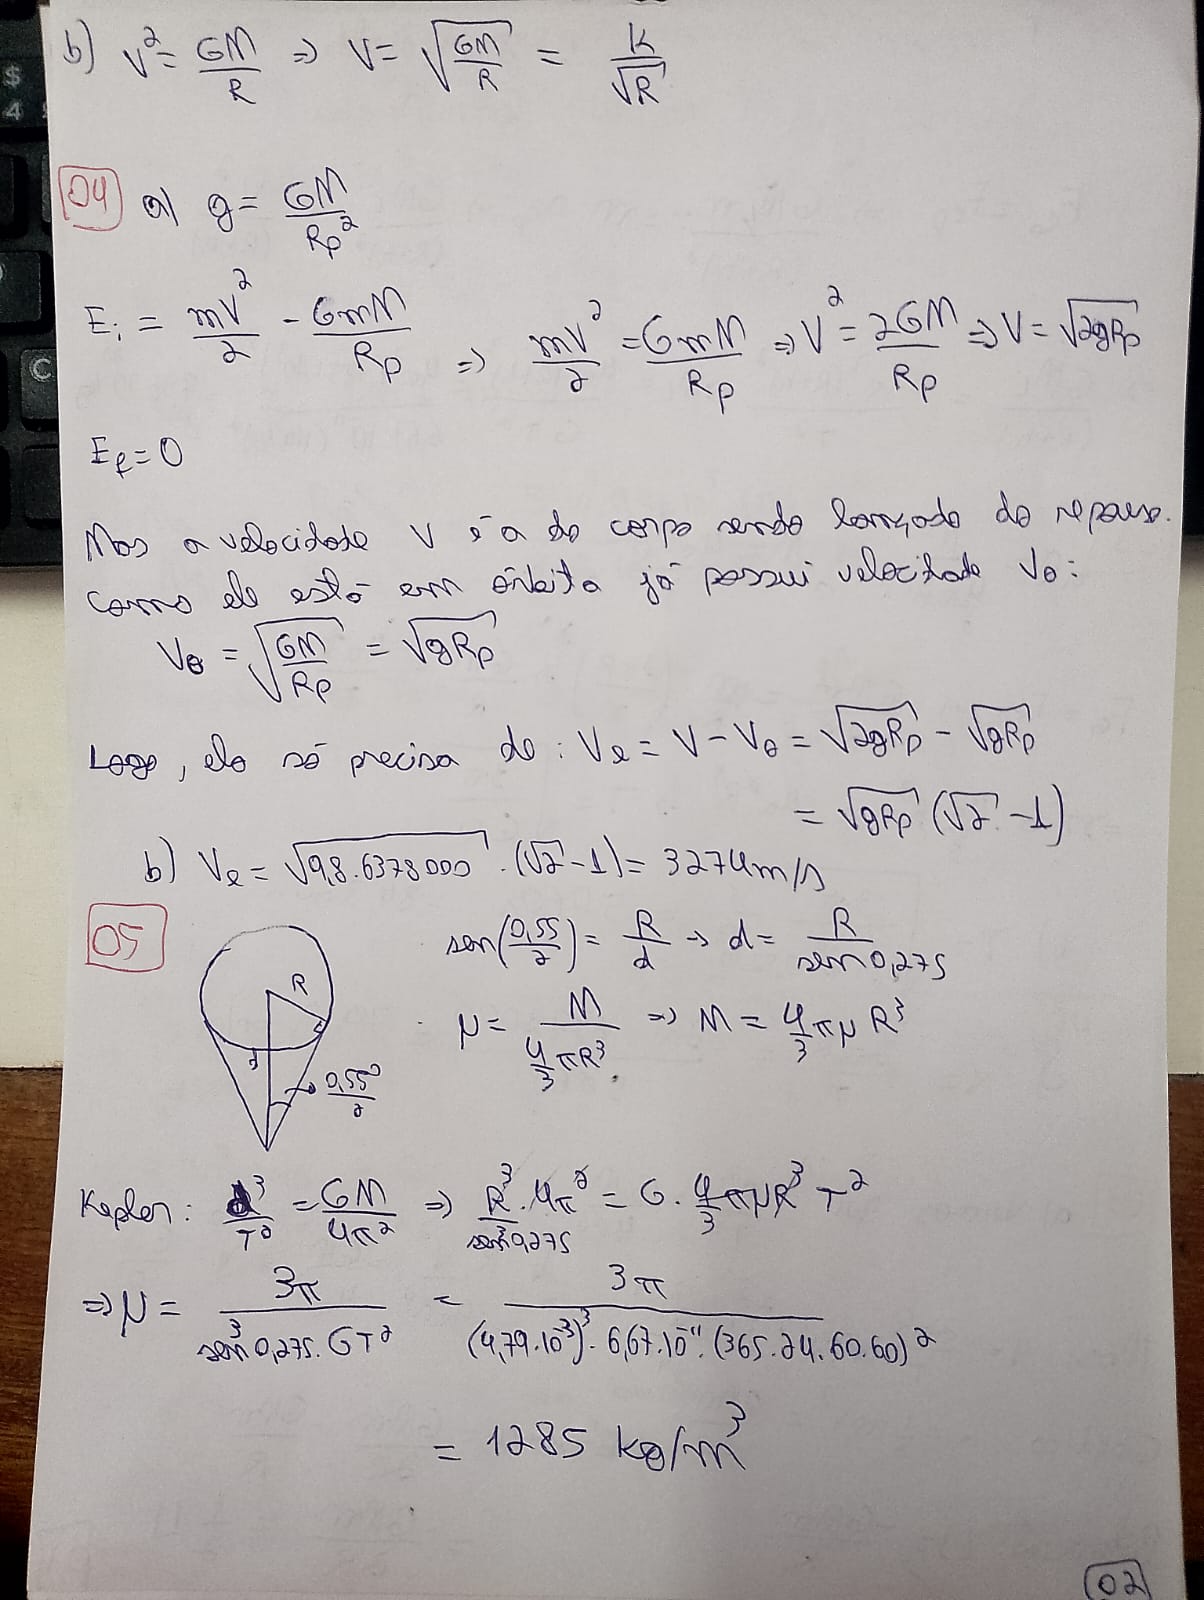 b) V² = GM/R ⇒ V = √(GM/R) = K/√R
04 a) g = GM/Rp²
Ei = mV²/2 - GmM/Rp ⇒ mV²/2 = GmM/Rp ⇒ V² = 2GM/Rp ⇒ V = √(2gRp)
Ef = 0
Mas a velocidade V é a do corpo sendo lançado do repouso.
Como ele está em órbita já possui velocidade Vo:
Vo = √(GM/Rp) = √(gRp)
Logo, ele só precisa de: Ve = V - Vo = √(2gRp) - √(gRp)
= √(gRp) (√2 - 1)
b) Ve = √(9,8.6378000) . (√2 - 1) = 3274 m/s
05
R
d
0,55°/2
sen(0,55/2) = R/d → d = R/sen 0,275
μ = M/(4/3 πR³) ⇒ M = 4/3 πμR³
Kepler: d³/T² = GM/4π² ⇒ R³.4π²/sen³0,275 = G. 4/3 πμR³ T²
⇒ μ = 3π/(sen³0,275.GT²) = 3π/((4,79.10⁻³)³.6,67.10⁻¹¹.(365.24.60.60)²)
= 1285 kg/m³
02
$
4
C